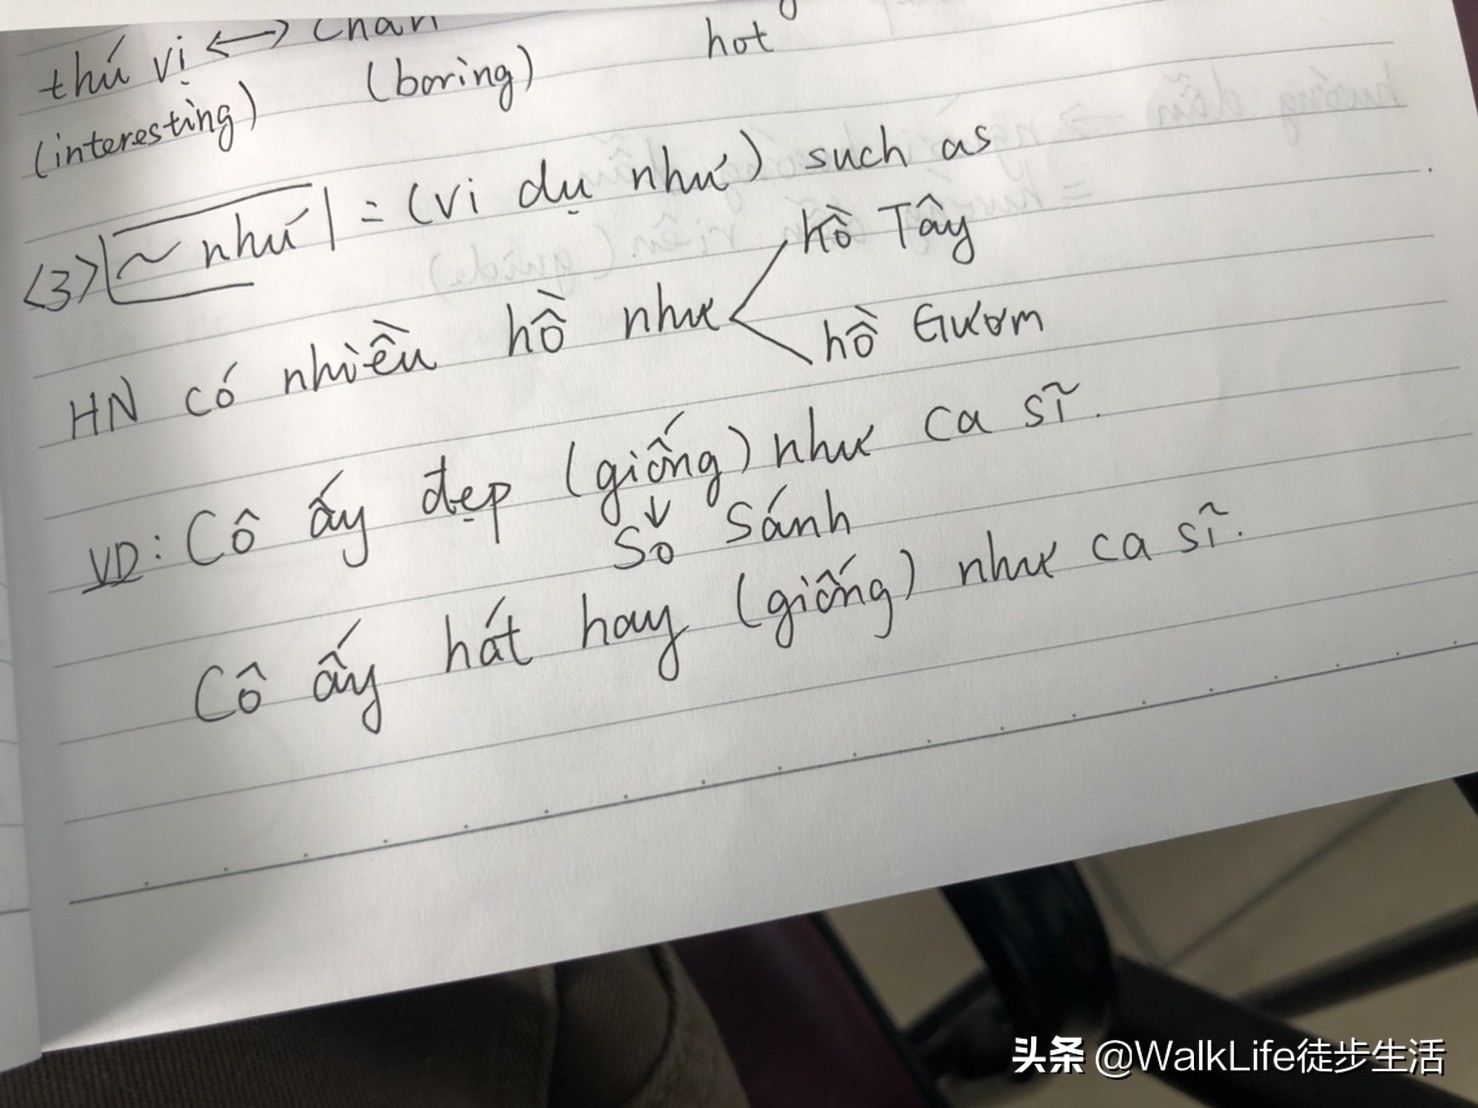 thú vị <-> chán
(interesting) (boring) hot
<3> ~ như = (ví dụ như) such as
HN có nhiều hồ như < hồ Tây
hồ Gươm
VD: Cô ấy đẹp (giống) như ca sĩ.
↓
So sánh
Cô ấy hát hay (giống) như ca sĩ.
头条 @WalkLife徒步生活